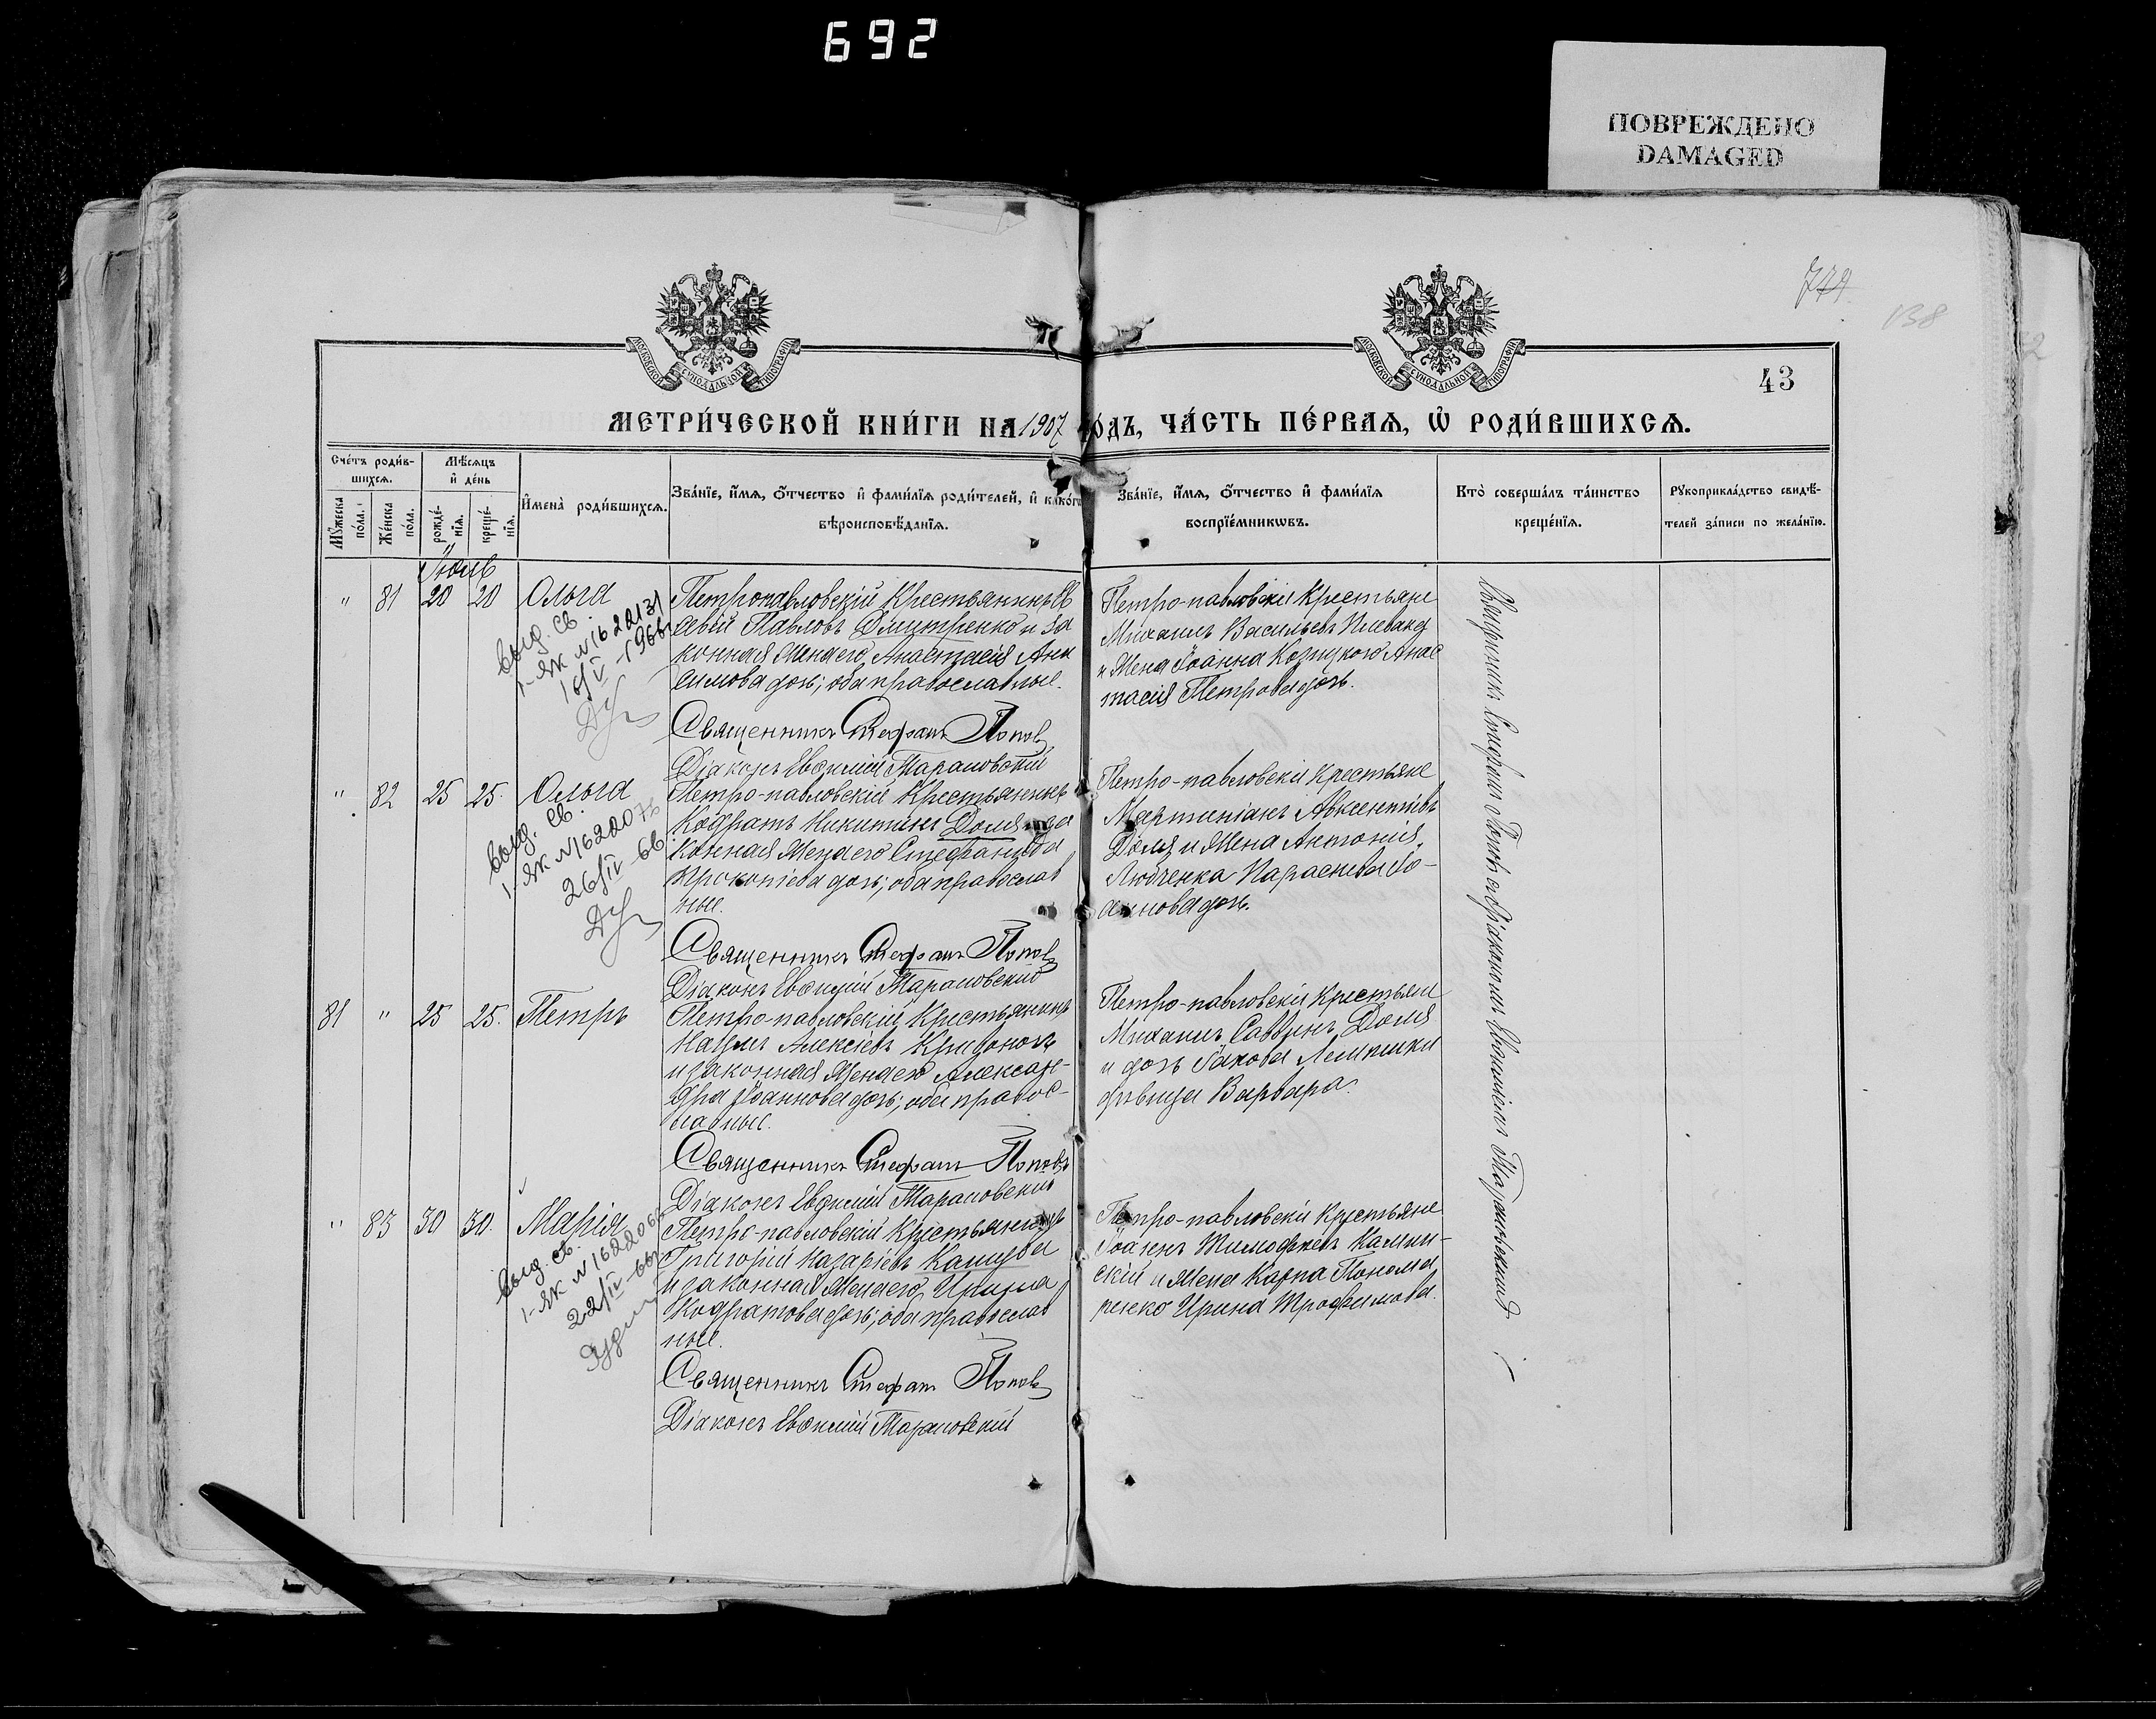 692
ПОВРЕЖДЕНО
DAMAGED
138
43
МЕТРИ́ЧЕСКОЙ КНИ́ГИ НА 1907 ГО́ДЪ, ЧА́СТЬ ПЕ́РВАѦ, Ѡ҆ РОДИ́ВШИХСѦ.
Сче́тъ роди́в-
шихсѧ.
Мѣ́сѧцъ
и҆ де́нь
Мꙋ́жеска по́ла.
Же́нска по́ла.
рожде́-
нїѧ.
креще́-
нїѧ.
И҆мена̀ роди́вшихсѧ.
Зва́нїе, и҆́мѧ, ѻ҆́тчество и҆ фами́лїѧ роди́телей, и҆ како́гѡ
вѣроисповѣ́данїѧ.
Зва́нїе, и҆́мѧ, ѻ҆́тчество и҆ фами́лїѧ
воспрїе́мникѡвъ.
Кто̀ соверша́лъ та́инство
креще́нїѧ.
Рꙋкоприкла́дство свидѣ́-
телей за́писи по жела́нїю.
Іюль
" 81 20 20 Ольга
выд. св.
I-ЯК №1622131
16/IV-1966г
Петропавловскій Крестьянинъ Ев
севій Павловъ Дмитренко и за
конная жена его Анастасія Ани
симова дочь; оба православные.
Священникъ Стефанъ Попов
Діаконъ Евфимій Тарановскій
Петро-павловскіе Крестьяне
Михаилъ Васильевъ
и жена Іоанна Козицкого Анас
тасія Петрова дочь.
" 82 25 25. Ольга
выд. св.
I-ЯК №1622007
26/IV-66
Петро-павловскій Крестьянинъ
Кодратъ Никитинъ Доля и за
конная жена его Стефанида
Прокопіева дочь; оба православ
ные.
Священникъ Стефанъ Попов
Діаконъ Евфимій Тарановскій
Петро-павловскіе Крестьяне
Мартиніанъ Авксентіевъ
Доля и жена Антонія
Любченка Параскева Іо-
аннова дочь.
81 " 25 25. Петръ
Петро-павловскій Крестьянинъ
Наумъ Алексіевъ Кривоносъ
и законная жена его Алексан-
дра Іоаннова дочь; оба правос-
лавные.
Священникъ Стефанъ Поповъ
Діаконъ Евфимій Тарановскій
Петро-павловскіе Крестьяне
Михаилъ Саввинъ Доля
и дочь Іакова
дѣвица Варвара.
" 83 30 30. Марія
выд. св.
I-ЯК №1622066
22/IV-66г
Петро-павловскій Крестьянинъ
Григорій Назаріевъ Кащуба
и законная жена его Ирина
Кодратова дочь; оба православ
ные.
Священникъ Стефанъ Попов
Діаконъ Евфимій Тарановскій
Петро-павловскіе Крестьяне
Іоаннъ Тимофеевъ Калин-
скій и жена Карпа Понома
ренко Ирина Трофимова.
Священникъ Стефанъ Поповъ съ діакономъ Евфиміемъ Тарановскимъ